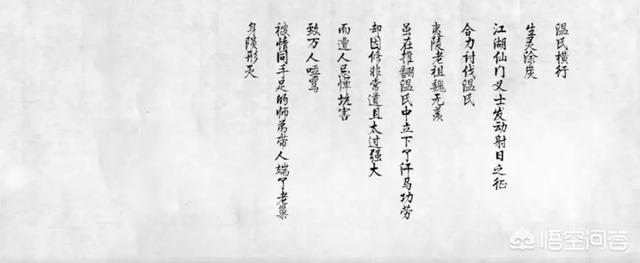 温氏横行
生灵涂炭
江湖仙门义士发动射日之征
合力讨伐温氏
夷陵老祖魏无羡
虽在推翻温氏中立下了汗马功劳
却因修非常道且太过强大
而遭人忌惮坑害
致万人唾骂
被情同手足的师弟带人端了老巢
身陨形灭
悟空问答